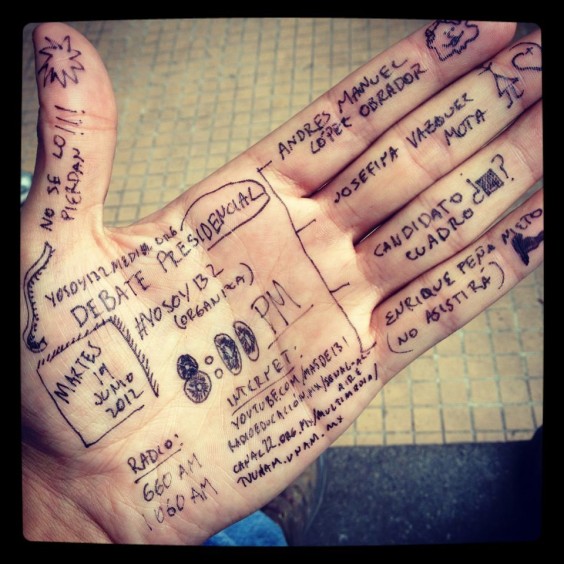 NO SE LO
PIERDAN!!!
ANDRES MANUEL
LÓPEZ OBRADOR
JOSEFINA VAZQUEZ
MOTA
CANDIDATO ¿
CUADRO ?
ENRIQUE PEÑA NIETO
(NO ASISTIRÁ)
YOSOY132MEDIA.ORG
DEBATE PRESIDENCIAL
#YOSOY132
(ORGANIZA)
8:00 PM
MARTES
19
JUNIO
2012
INTERNET:
YOUTUBE.COM/MASDE131
RADIOEDUCACIÓN.MX/SEÑAL-AL-
AIRE
CANAL22.ORG.MX/MULTIMEDIA/
TVUNAM.UNAM.MX
RADIO:
660 AM
1060 AM